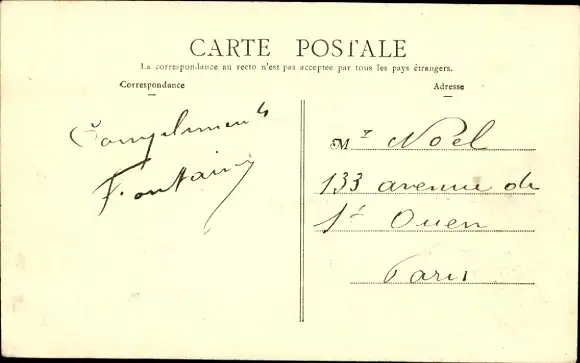 CARTE POSTALE
La correspondance au recto n'est pas acceptée par tous les pays étrangers.
Correspondance
Adresse
Compliments
Fontaine
Mr Noël
133 avenue de
St Ouen
Paris